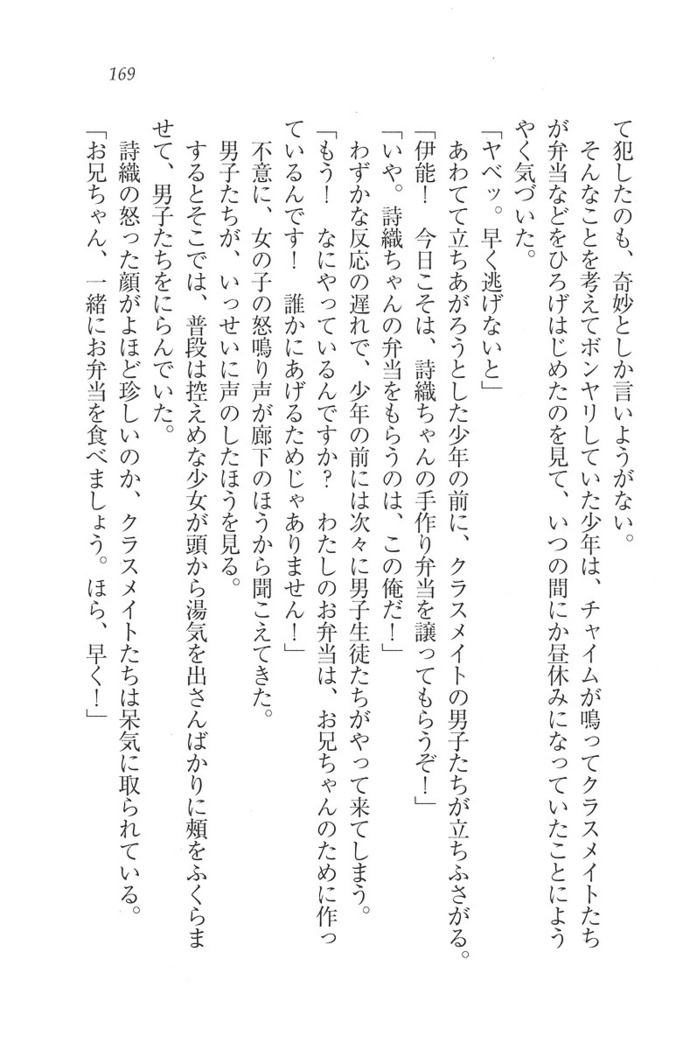 169
て犯したのも、奇妙としか言いようがない。
　そんなことを考えてボンヤリしていた少年は、チャイムが鳴ってクラスメイトたち
が弁当などをひろげはじめたのを見て、いつの間にか昼休みになっていたことによう
やく気づいた。
「ヤベッ。早く逃げないと」
　あわてて立ちあがろうとした少年の前に、クラスメイトの男子たちが立ちふさがる。
「伊能！　今日こそは、詩織ちゃんの手作り弁当を譲ってもらうぞ！」
「いや。詩織ちゃんの弁当をもらうのは、この俺だ！」
　わずかな反応の遅れで、少年の前には次々に男子生徒たちがやって来てしまう。
「もう！　なにやっているんですか？　わたしのお弁当は、お兄ちゃんのために作っ
ているんです！　誰かにあげるためじゃありません！」
　不意に、女の子の怒鳴り声が廊下のほうから聞こえてきた。
　男子たちが、いっせいに声のしたほうを見る。
　するとそこでは、普段は控えめな少女が頭から湯気を出さんばかりに頰をふくらま
せて、男子たちをにらんでいた。
　詩織の怒った顔がよほど珍しいのか、クラスメイトたちは呆気に取られている。
「お兄ちゃん、一緒にお弁当を食べましょう。ほら、早く！」